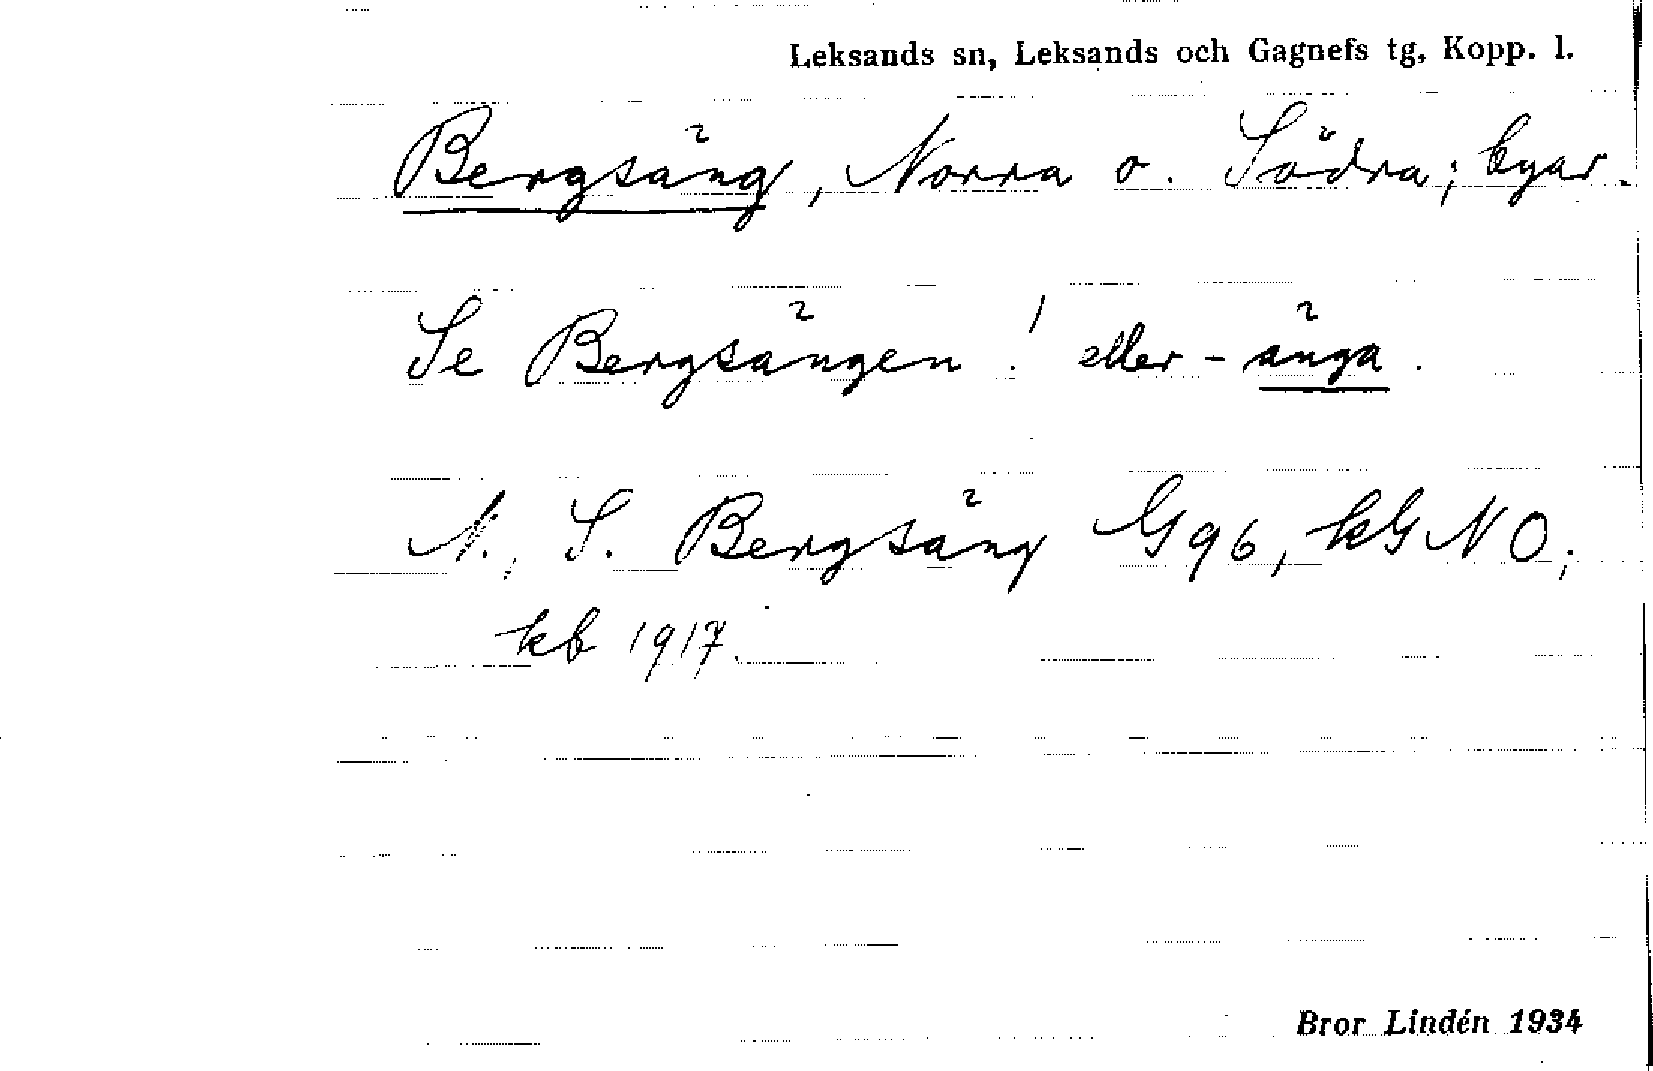 Leksands sn, Leksands och Gagnefs tg, Kopp. l.
Bergsäng, Norra o. Södra; byar.
Se Bergsängen! eller -änga.
N., S. Bergsäng G96, kGNO;
kb 1917.
Bror Lindén 1934